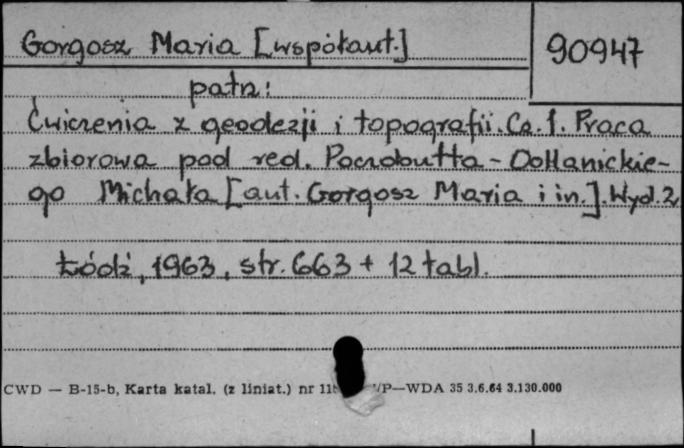 Gorgosz Maria [współaut.]
90947
patrz:
Ćwiczenia z geodezji i topografii. Cz. 1. Praca
zbiorowa pod red. - Dołłanickie-
go Michała [aut. Gorgosz Maria i in.]. Wyd. 2
Łódź, 1963, str. 663 + 12 tabl.
CWD — B-15-b, Karta katal. (z liniat.) nr P—WDA 35 3.6.64 3.130.000